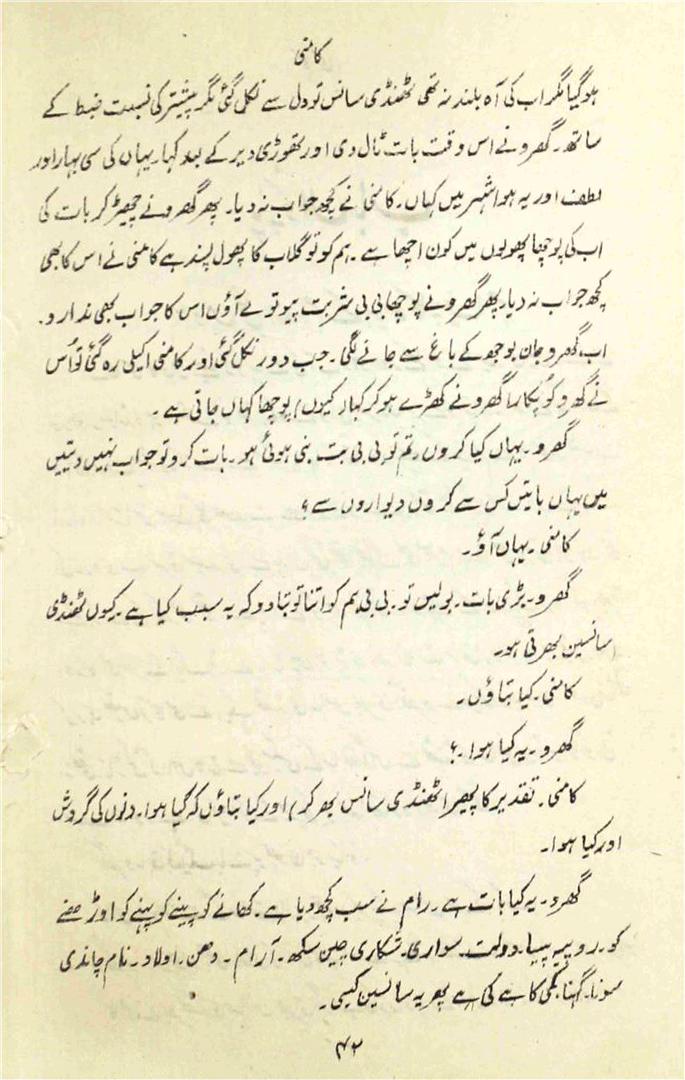 کامنی
ہوگیا مگر اب کی آہ بلند نہ تھی ٹھنڈی سانس تو دل سے نکل گئی مگر پیشتر کی نسبت ضبط کے
ساتھ۔ گھرو نے اس وقت بات ٹال دی اور تھوڑی دیر کے بعد کہا۔ یہاں کی سی بہار اور
لطف اور یہ ہوا شہر میں کہاں۔ کامنی نے کچھ جواب نہ دیا۔ پھر گھرو نے چھیڑ کر بات کی
اب کی پوچھا پھولوں میں کون اچھا ہے۔ ہم کو تو گلاب کا پھول پسند ہے کامنی نے اس کا بھی
کچھ جواب نہ دیا۔ پھر گھرو نے پوچھا بی بی شربت پیو تو لے آؤں اس کا جواب بھی ندارد۔
اب گھرو جان بوجھ کے باغ سے جانے لگی۔ جب دور نکل گئی اور کامنی اکیلی رہ گئی تو اُس
نے گھرو کو پکارا گھرو نے کھڑے ہو کر کہا (کیوں) پوچھا کہاں جاتی ہے۔
گھرو۔ یہاں کیا کروں۔ تم تو بی بی بت بنی ہوئی ہو۔ بات کرو تو جواب نہیں دیتیں
میں یہاں باتیں کس سے کروں دیواروں سے؟
کامنی۔ یہاں آؤ۔
گھرو۔ بڑی بات۔ بولیں تو۔ بی بی ہم کو اتنا تو بتا دو کہ یہ سبب کیا ہے۔ کیوں ٹھنڈی
سانسیں بھرتی ہو۔
کامنی۔ کیا بتاؤں۔
گھرو۔ یہ کیا ہوا۔؟
کامنی۔ تقدیر کا پھیر (ٹھنڈی سانس بھر کر) اور کیا بتاؤں کہ کیا ہوا۔ دنوں کی گردش
اور کیا ہوا۔
گھرو۔ یہ کیا بات ہے۔ رام نے سب کچھ دیا ہے۔ کھانے کو پینے کو پہنے کو اوڑھنے
کو۔ روپیہ پیسا۔ دولت۔ سواری۔ شکاری چین سکھ۔ آرام۔ دھن۔ اولاد۔ نام چاندی
سونا۔ گہنا۔ کمی کا ہے کی ہے پھر یہ سانسیں کیسی۔
۴۲